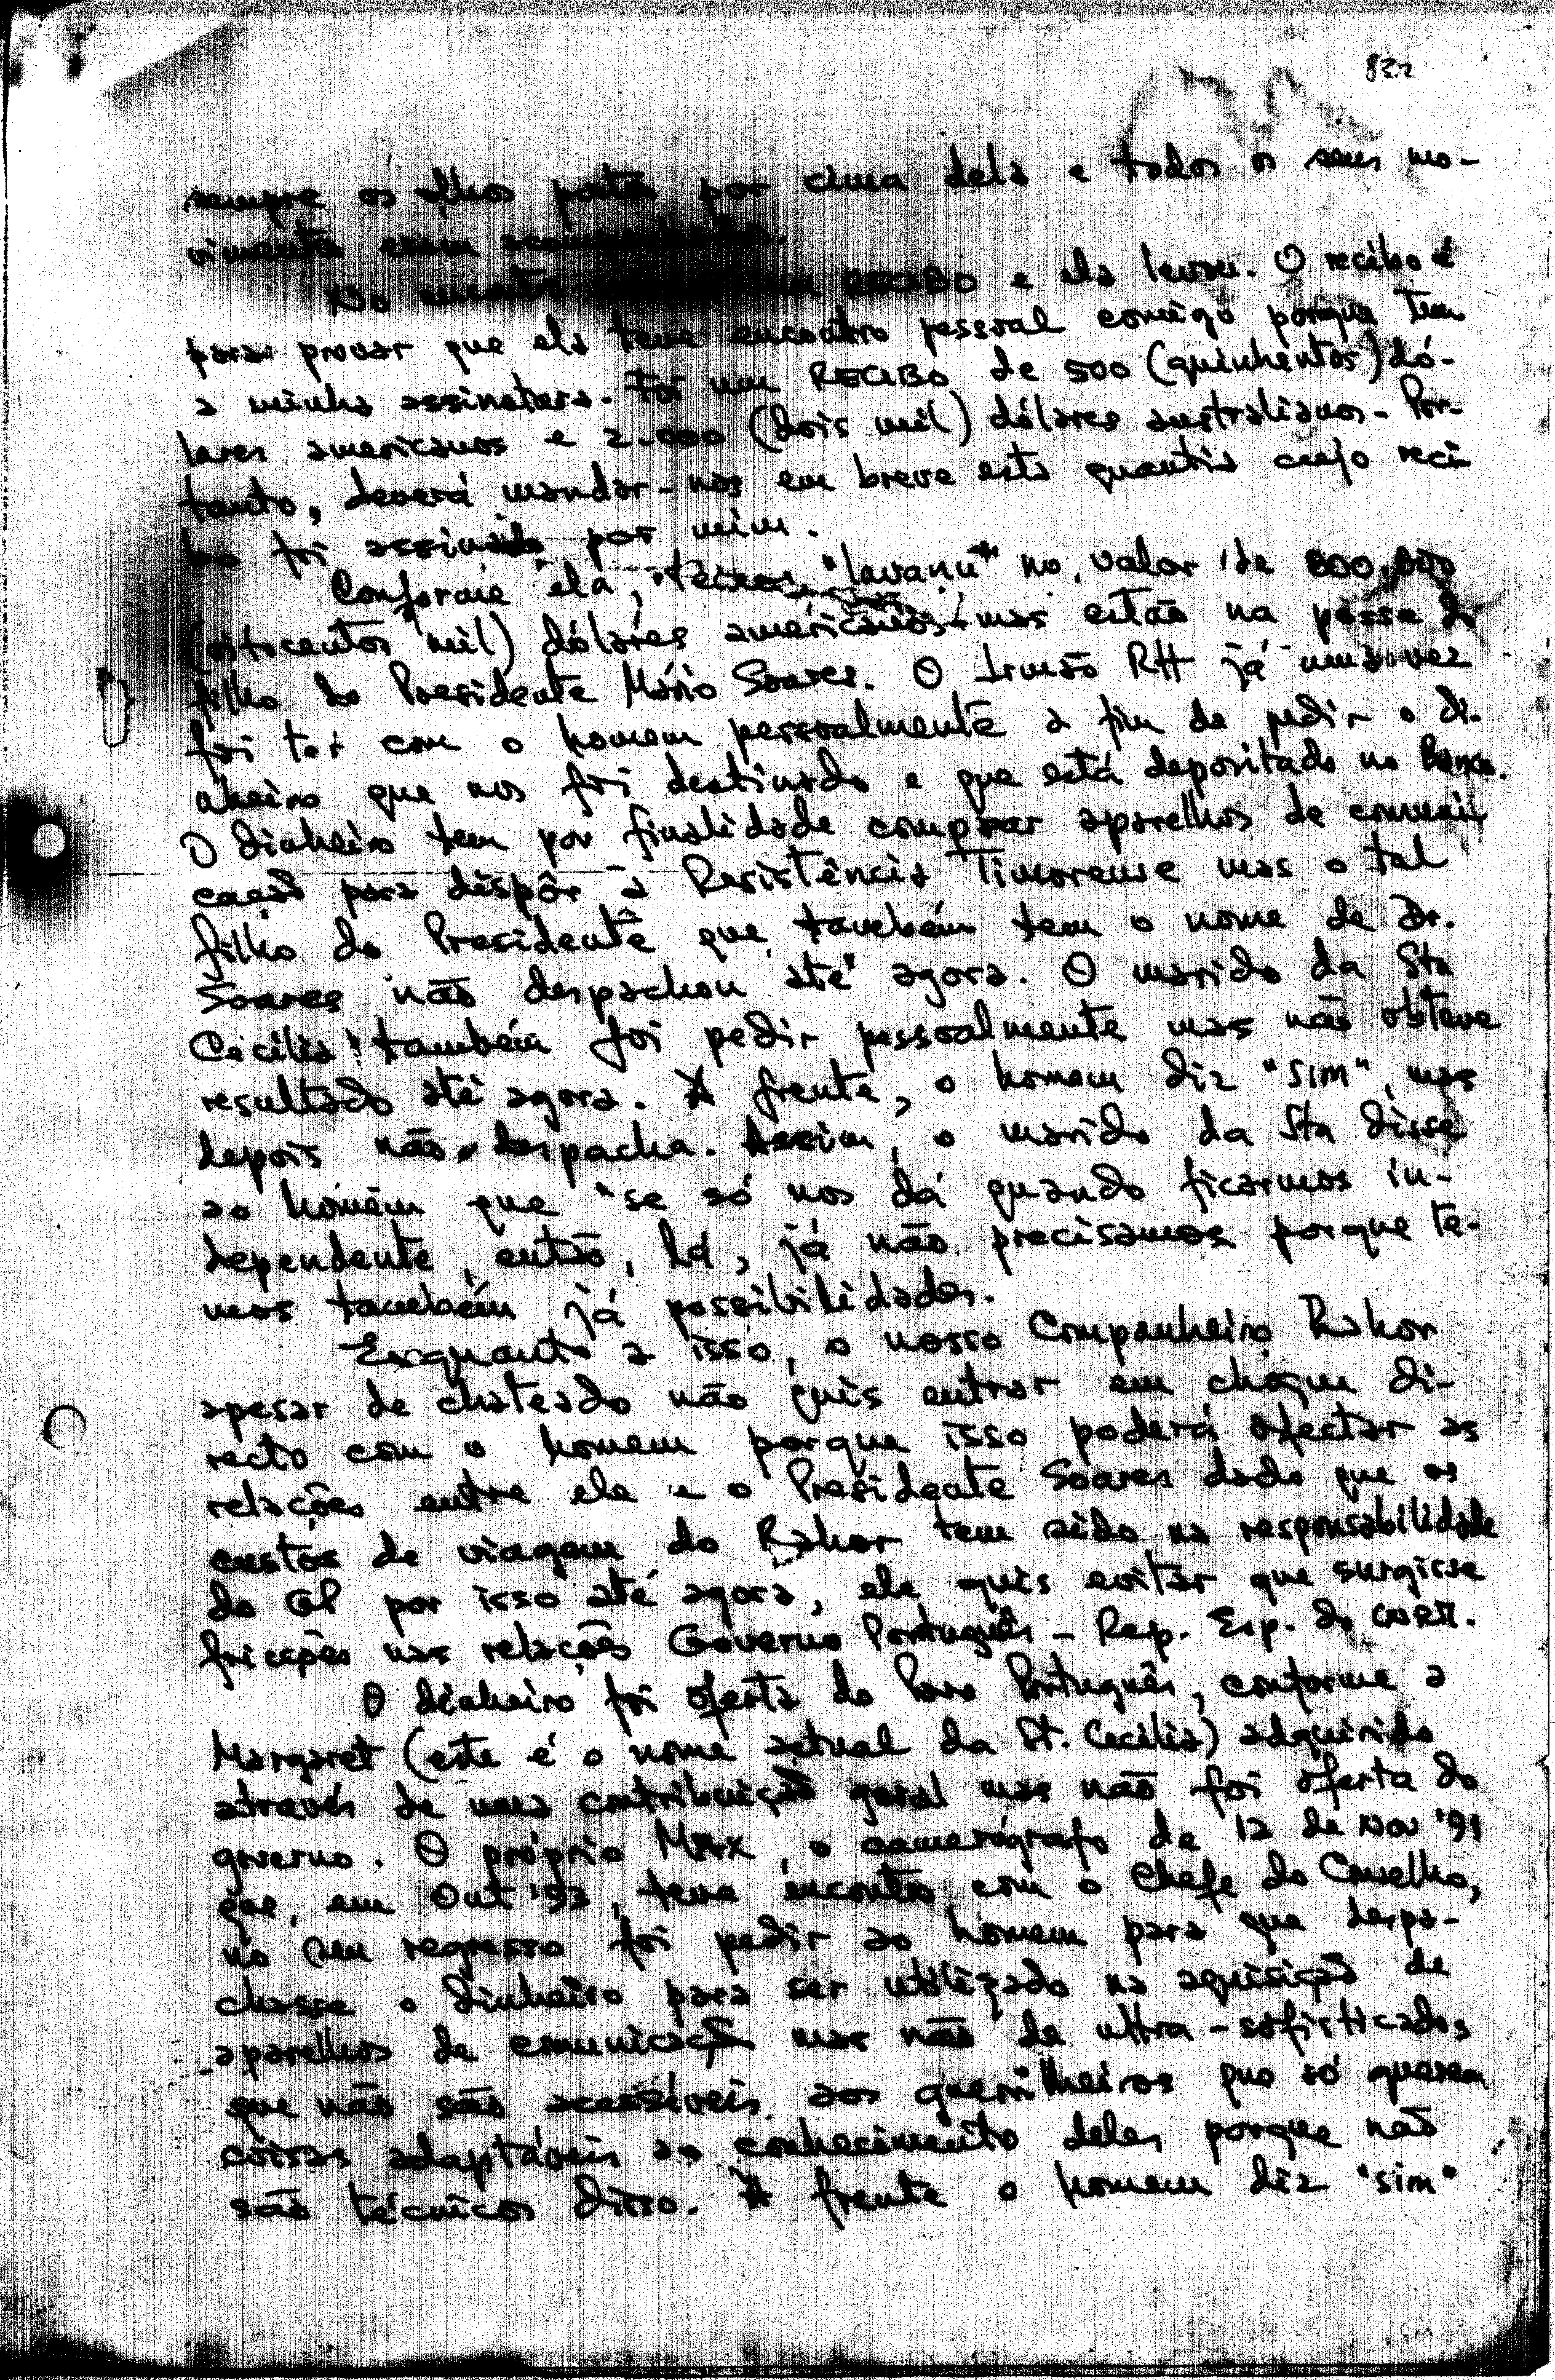 832
sempre os olhos postos por cima dela e todos os seus mo-
vimentos eram
No encontro RECIBO e ela levou. O recibo é
para provar que ela teve encontro pessoal comigo porque tem
a minha assinatura. Foi um RECIBO de 500 (quinhentos) dó-
lares americanos e 2.000 (dois mil) dólares australianos. Por-
tanto, deverá mandar-nos em breve esta quantia cujo reci
bo foi assinado por mim.
Conforme ela, temos "lavanu" no valor de 800.000
(oitocentos mil) dólares americanos mas estão na posse do
filho do Presidente Mário Soares. O Irmão RH já uma vez
foi ter com o homem pessoalmente a fim de pedir o di-
nheiro que nos foi destinado e que está depositado no Banco.
O dinheiro tem por finalidade comprar aparelhos de comuni
cação para dispôr à Resistência Timorense mas o tal
filho do Presidente que também tem o nome de Dr.
Soares não despachou até agora. O marido da Sta
Cecília também foi pedir pessoalmente mas não obteve
resultado até agora. À frente, o homem diz "SIM", mas
depois não despacha. Assim, o marido da Sta disse
ao homem que "se só nos dá quando ficarmos in-
dependente, então, lá, já não precisamos porque te-
mos também já possibilidades.
Enquanto a isso, o nosso Companheiro Rahor
apesar de chateado não quis entrar em choque di-
recto com o homem porque isso poderá afectar as
relações entre ele e o Presidente Soares dado que os
custos de viagem do Rahor tem sido na responsabilidade
do GP por isso até agora, ele quis evitar que surgisse
fricções nas relações Governo Português - Rep. Esp. do CNRM.
O dinheiro foi oferta do Povo Português, conforme a
Margaret (este é o nome actual da St. Cecília) adquirido
através de uma contribuição geral mas não foi oferta do
governo. O próprio Max, o camerógrafo de 12 de Nov '91
que, em Out '93, teve encontro com o Chefe do Conselho,
no seu regresso foi pedir ao homem para que despa-
chasse o dinheiro para ser utilizado na aquisição de
aparelhos de comunicação mas não de ultra-sofisticados
que não são acessíveis aos guerrilheiros que só querem
coisas adaptáveis ao conhecimento deles porque não
são técnicos disso. À frente o homem diz "sim"